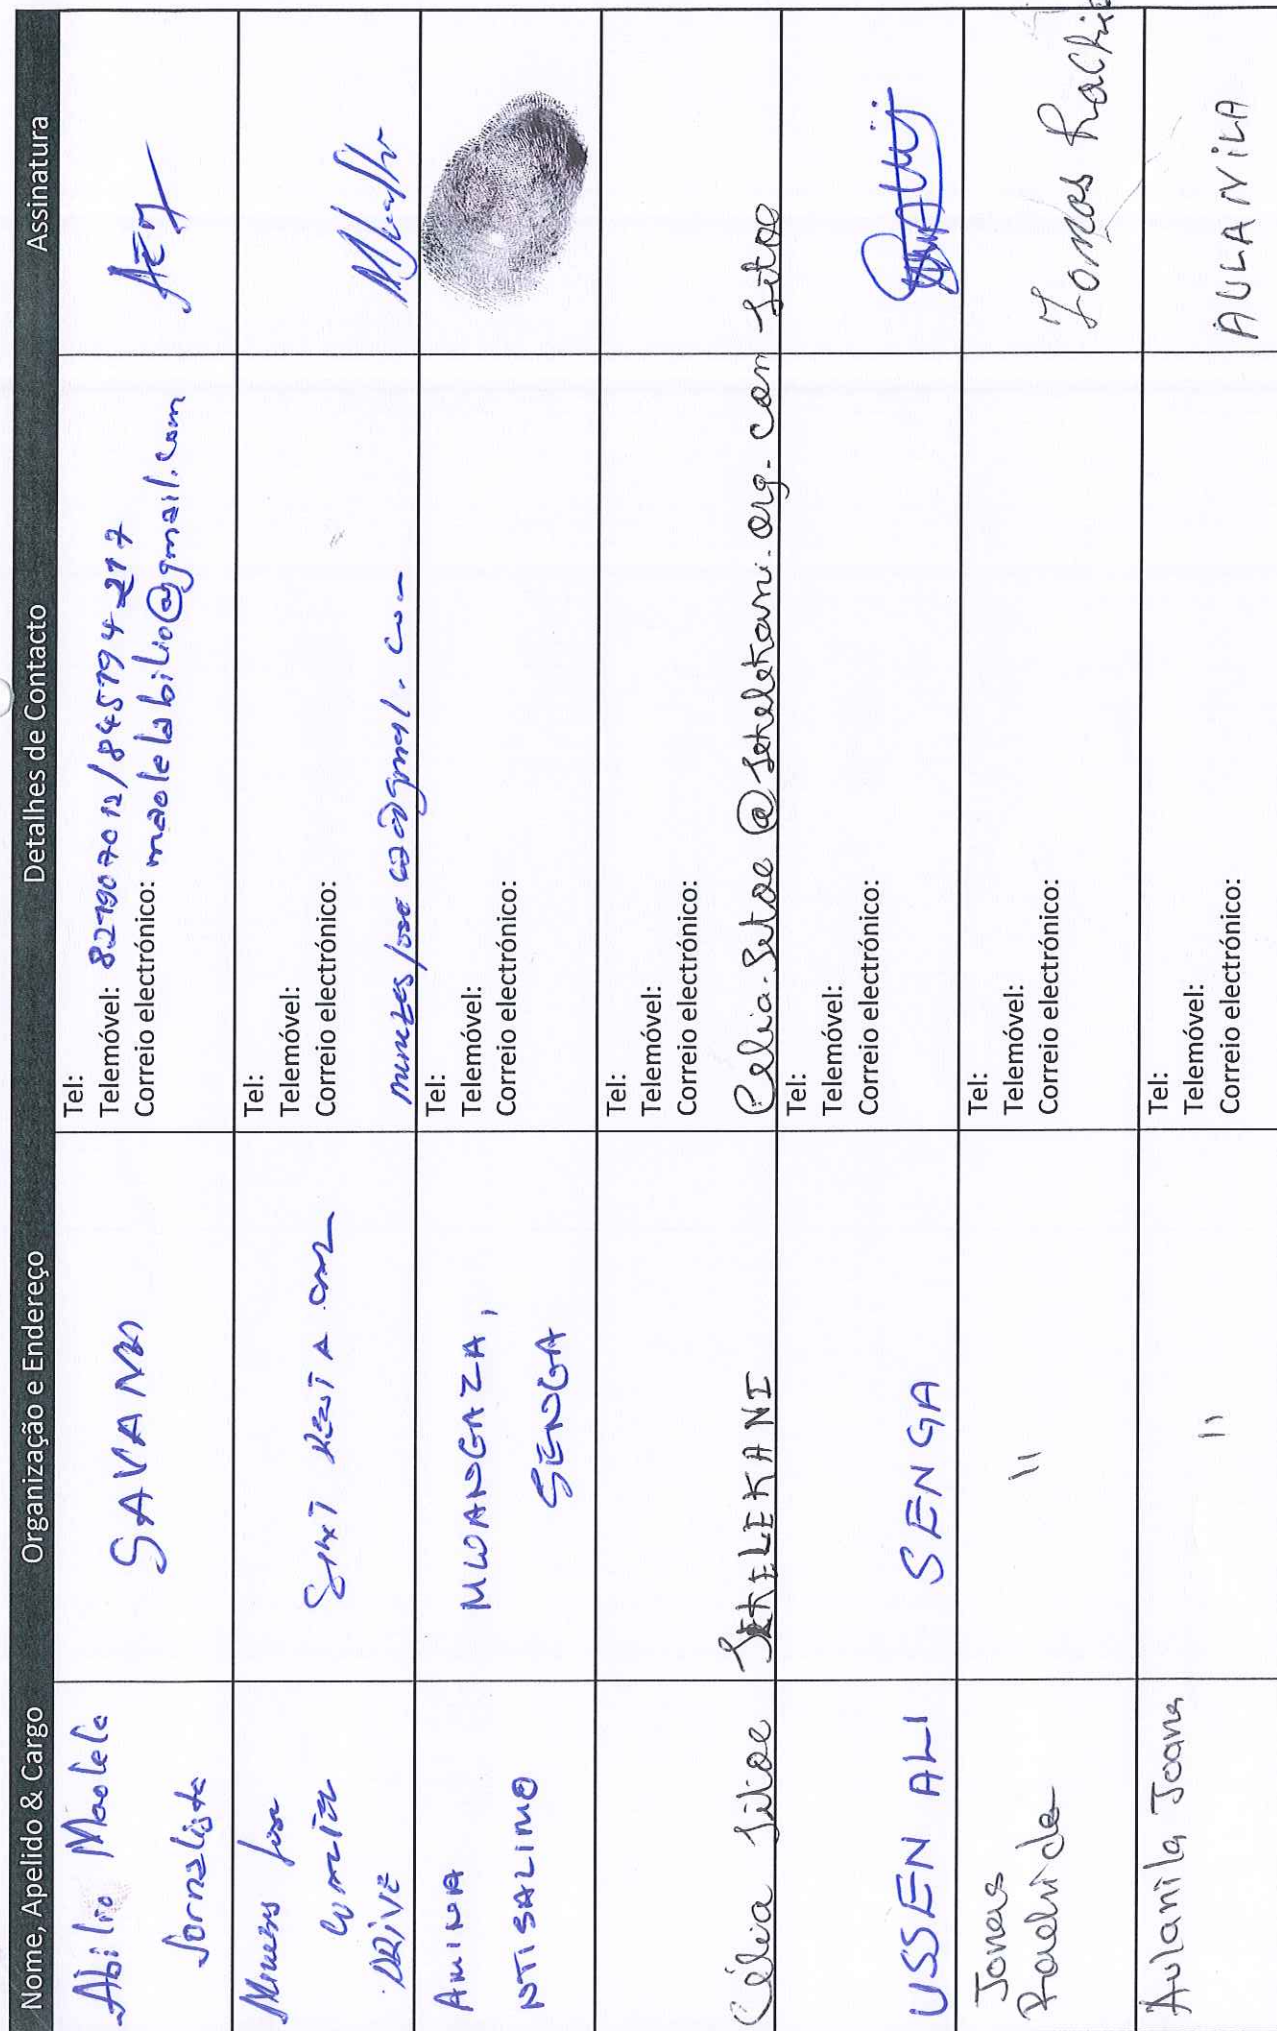 Nome, Apelido & Cargo Organização e Endereço Detalhes de Contacto Assinatura
Abilio Maolela
Jornalista
SAVANA
Tel:
Telemóvel: 827907012/845794217
Correio electrónico: maolelabilio@gmail.com
DRIVE
Tel:
Telemóvel:
Correio electrónico:
AMINA
NTISALIMO
MWANGAZA,
SENGA
Tel:
Telemóvel:
Correio electrónico:
Célia Sitoe
SEKELEKANI
Tel:
Telemóvel:
Correio electrónico:
Celia.Sitoe@sekelekani.org.com
Sitoe
USSEN ALI
SENGA
Tel:
Telemóvel:
Correio electrónico:
Jonas
"
Tel:
Telemóvel:
Correio electrónico:
Jomas
Aulanila Joana
"
Tel:
Telemóvel:
Correio electrónico:
AULANILA